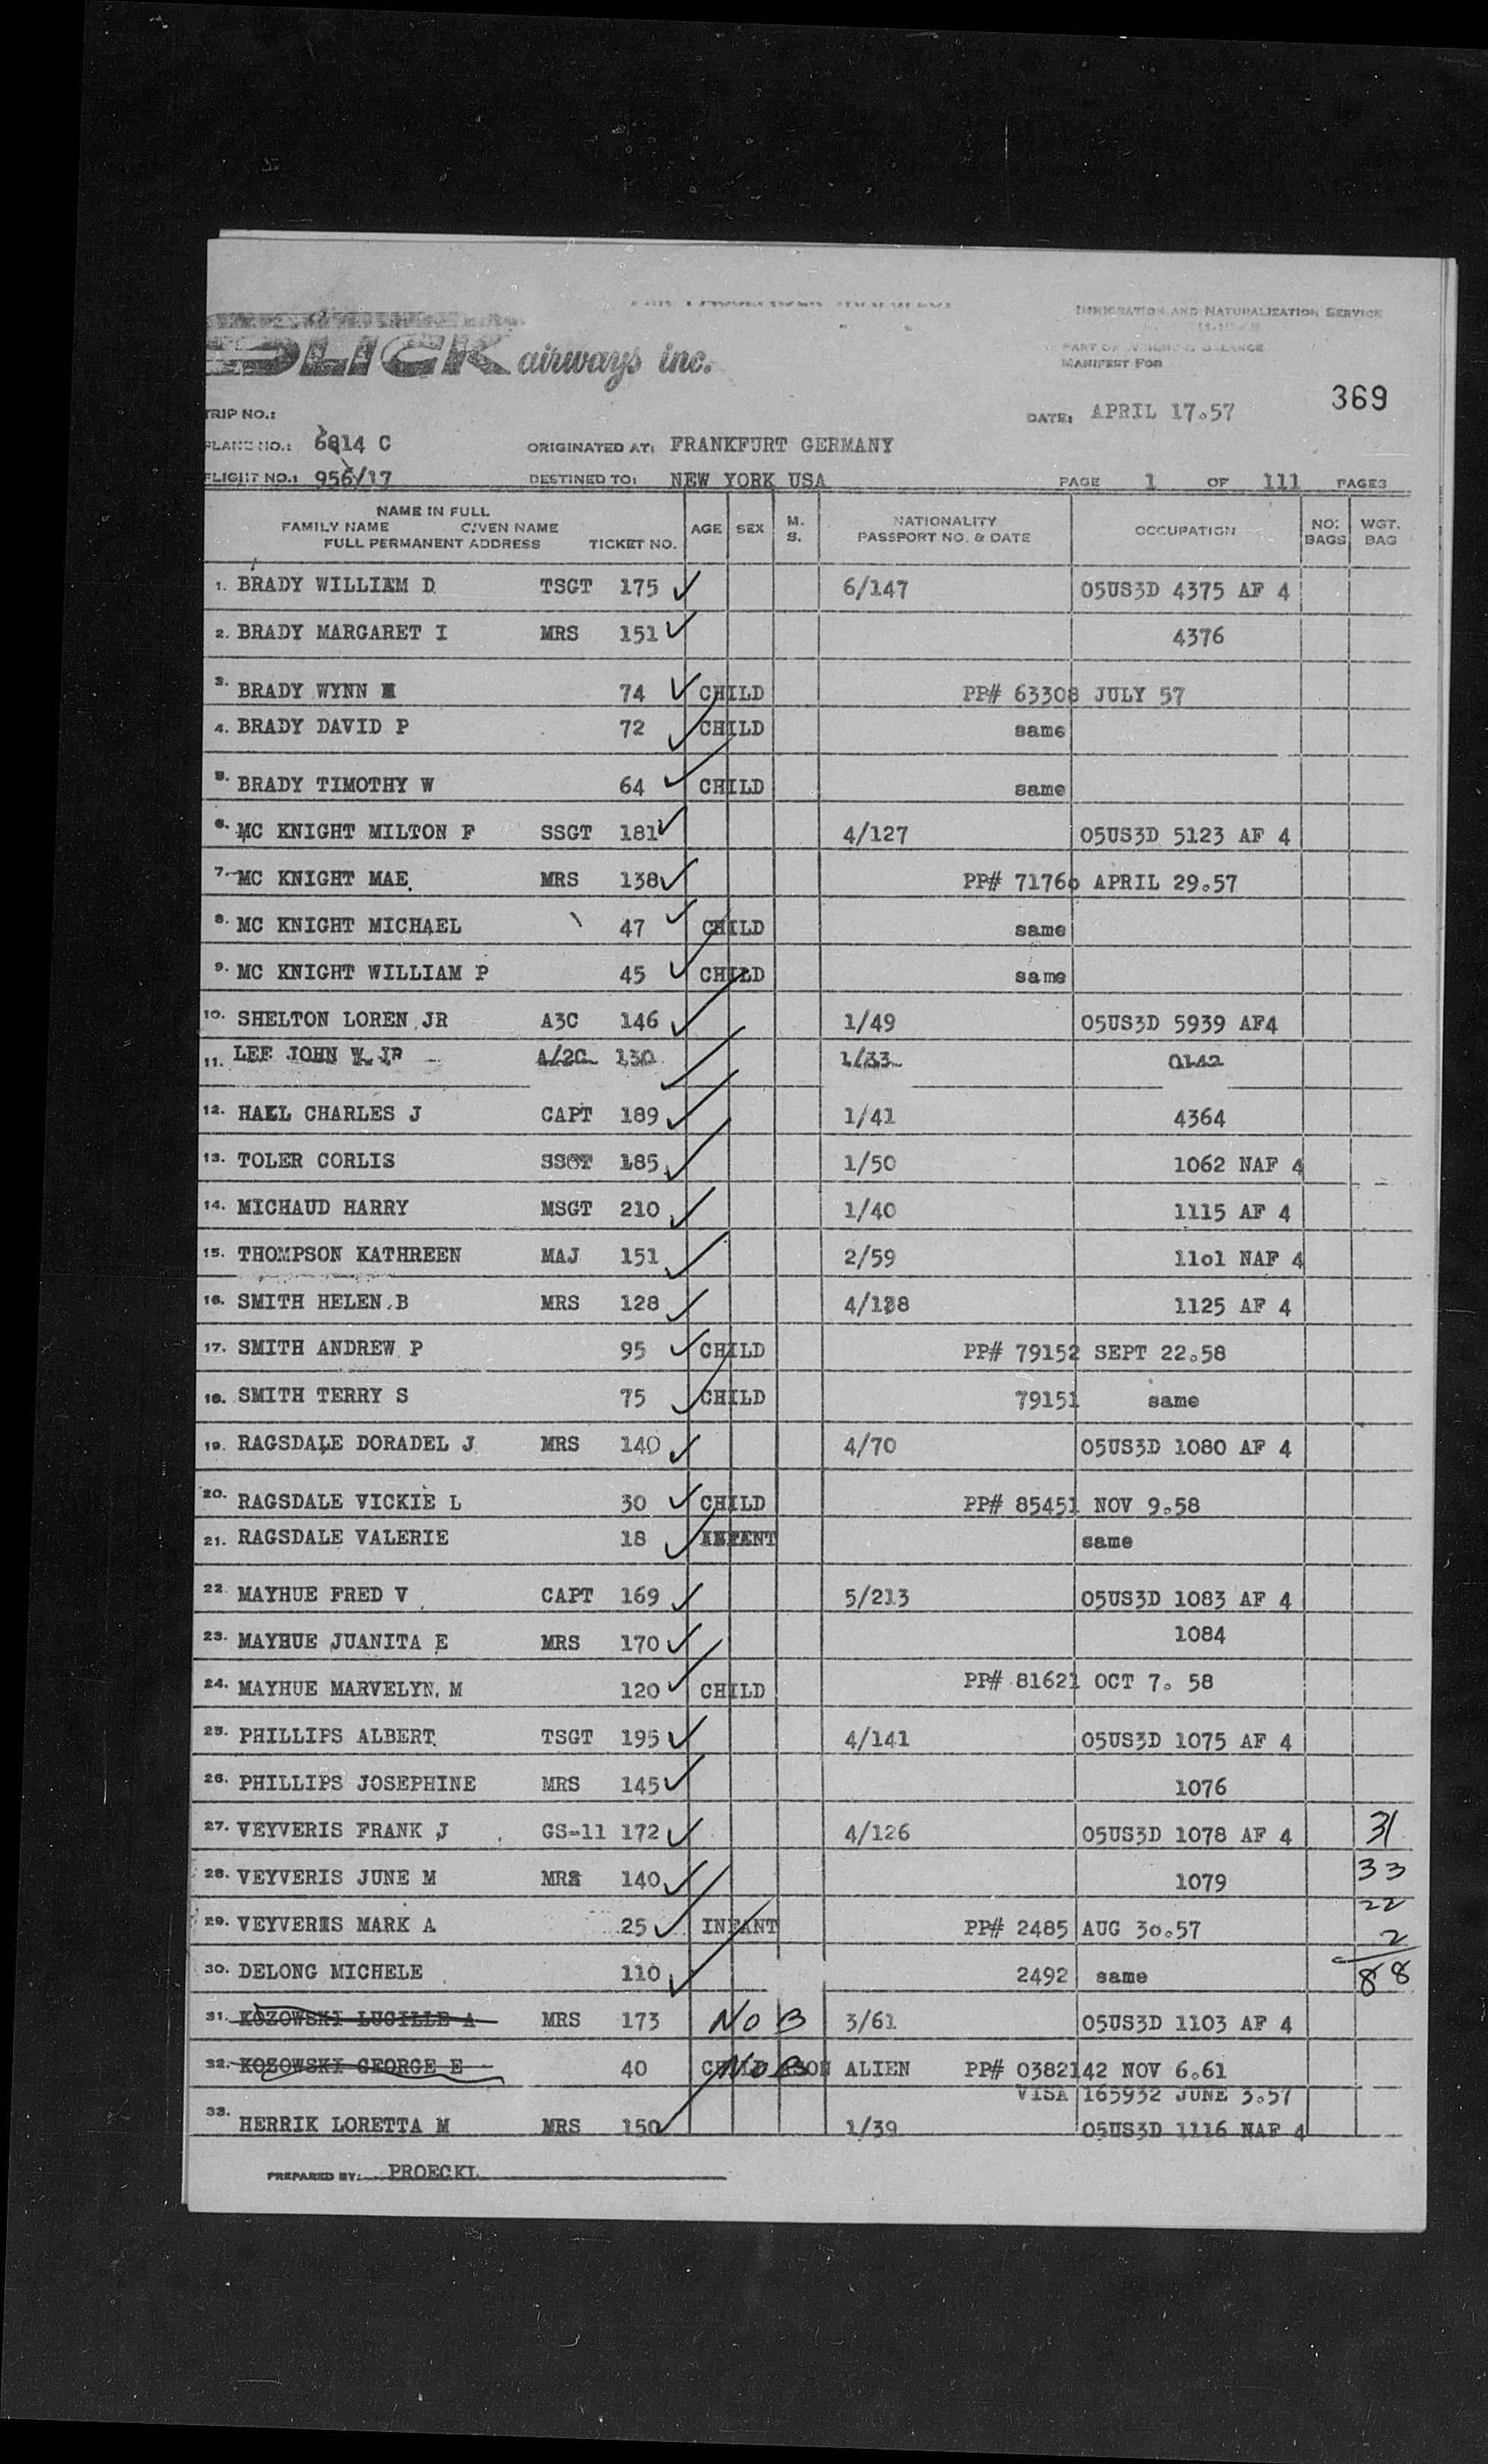 AIR PASSENGER MANIFEST
IMMIGRATION AND NATURALIZATION SERVICE
SLICK airways inc.
PART OF WEIGHT & BALANCE
MANIFEST FOR
369
TRIP NO.:
DATE: APRIL 17.57
PLANE NO.: 6814 C ORIGINATED AT: FRANKFURT GERMANY
FLIGHT NO.: 956/17 DESTINED TO: NEW YORK USA PAGE 1 OF 111 PAGES
NAME IN FULL
FAMILY NAME GIVEN NAME
FULL PERMANENT ADDRESS TICKET NO. AGE SEX M. S. NATIONALITY PASSPORT NO. & DATE OCCUPATION NO. BAGS WGT. BAG
1. BRADY WILLIAM D TSGT 175 ✓ 6/147 05US3D 4375 AF 4
2. BRADY MARGARET I MRS 151 ✓ 4376
3. BRADY WYNN 74 ✓ CHILD PP# 63308 JULY 57
4. BRADY DAVID P 72 ✓ CHILD same
5. BRADY TIMOTHY W 64 ✓ CHILD same
6. MC KNIGHT MILTON F SSGT 181 ✓ 4/127 05US3D 5123 AF 4
7. MC KNIGHT MAE MRS 138 ✓ PP# 71760 APRIL 29.57
8. MC KNIGHT MICHAEL 47 ✓ CHILD same
9. MC KNIGHT WILLIAM P 45 ✓ CHILD same
10. SHELTON LOREN JR A3C 146 ✓ 1/49 05US3D 5939 AF4
11. LEE JOHN W JR A/2C 130 ✓ 1/33 0142
12. HALL CHARLES J CAPT 189 ✓ 1/41 4364
13. TOLER CORLIS SSGT 185 ✓ 1/50 1062 NAF 4
14. MICHAUD HARRY MSGT 210 ✓ 1/40 1115 AF 4
15. THOMPSON KATHREEN MAJ 151 ✓ 2/59 11o1 NAF 4
16. SMITH HELEN B MRS 128 ✓ 4/138 1125 AF 4
17. SMITH ANDREW P 95 ✓ CHILD PP# 79152 SEPT 22.58
18. SMITH TERRY S 75 ✓ CHILD 79151 same
19. RAGSDALE DORADEL J MRS 140 ✓ 4/70 05US3D 1080 AF 4
20. RAGSDALE VICKIE L 30 ✓ CHILD PP# 85451 NOV 9.58
21. RAGSDALE VALERIE 18 ✓ INFANT same
22. MAYHUE FRED V CAPT 169 ✓ 5/213 05US3D 1083 AF 4
23. MAYHUE JUANITA E MRS 170 ✓ 1084
24. MAYHUE MARVELYN M 120 ✓ CHILD PP# 81621 OCT 7. 58
25. PHILLIPS ALBERT TSGT 195 ✓ 4/141 05US3D 1075 AF 4
26. PHILLIPS JOSEPHINE MRS 145 ✓ 1076
27. VEYVERIS FRANK J GS-11 172 ✓ 4/126 05US3D 1078 AF 4 31
28. VEYVERIS JUNE M MRS 140 ✓ 1079 33
29. VEYVERIS MARK A 25 ✓ INFANT PP# 2485 AUG 30.57 22
2
30. DELONG MICHELE 110 ✓ 2492 same 88
31. KOZOWSKI LUCILLE A MRS 173 No B 3/61 05US3D 1103 AF 4
32. KOZOWSKI GEORGE E 40 CHILD No B SON ALIEN PP# 0382142 NOV 6.61
VISA 165932 JUNE 3.57
33. HERRIK LORETTA M MRS 150 ✓ 1/39 05US3D 1116 NAF 4
PREPARED BY: PROECKL